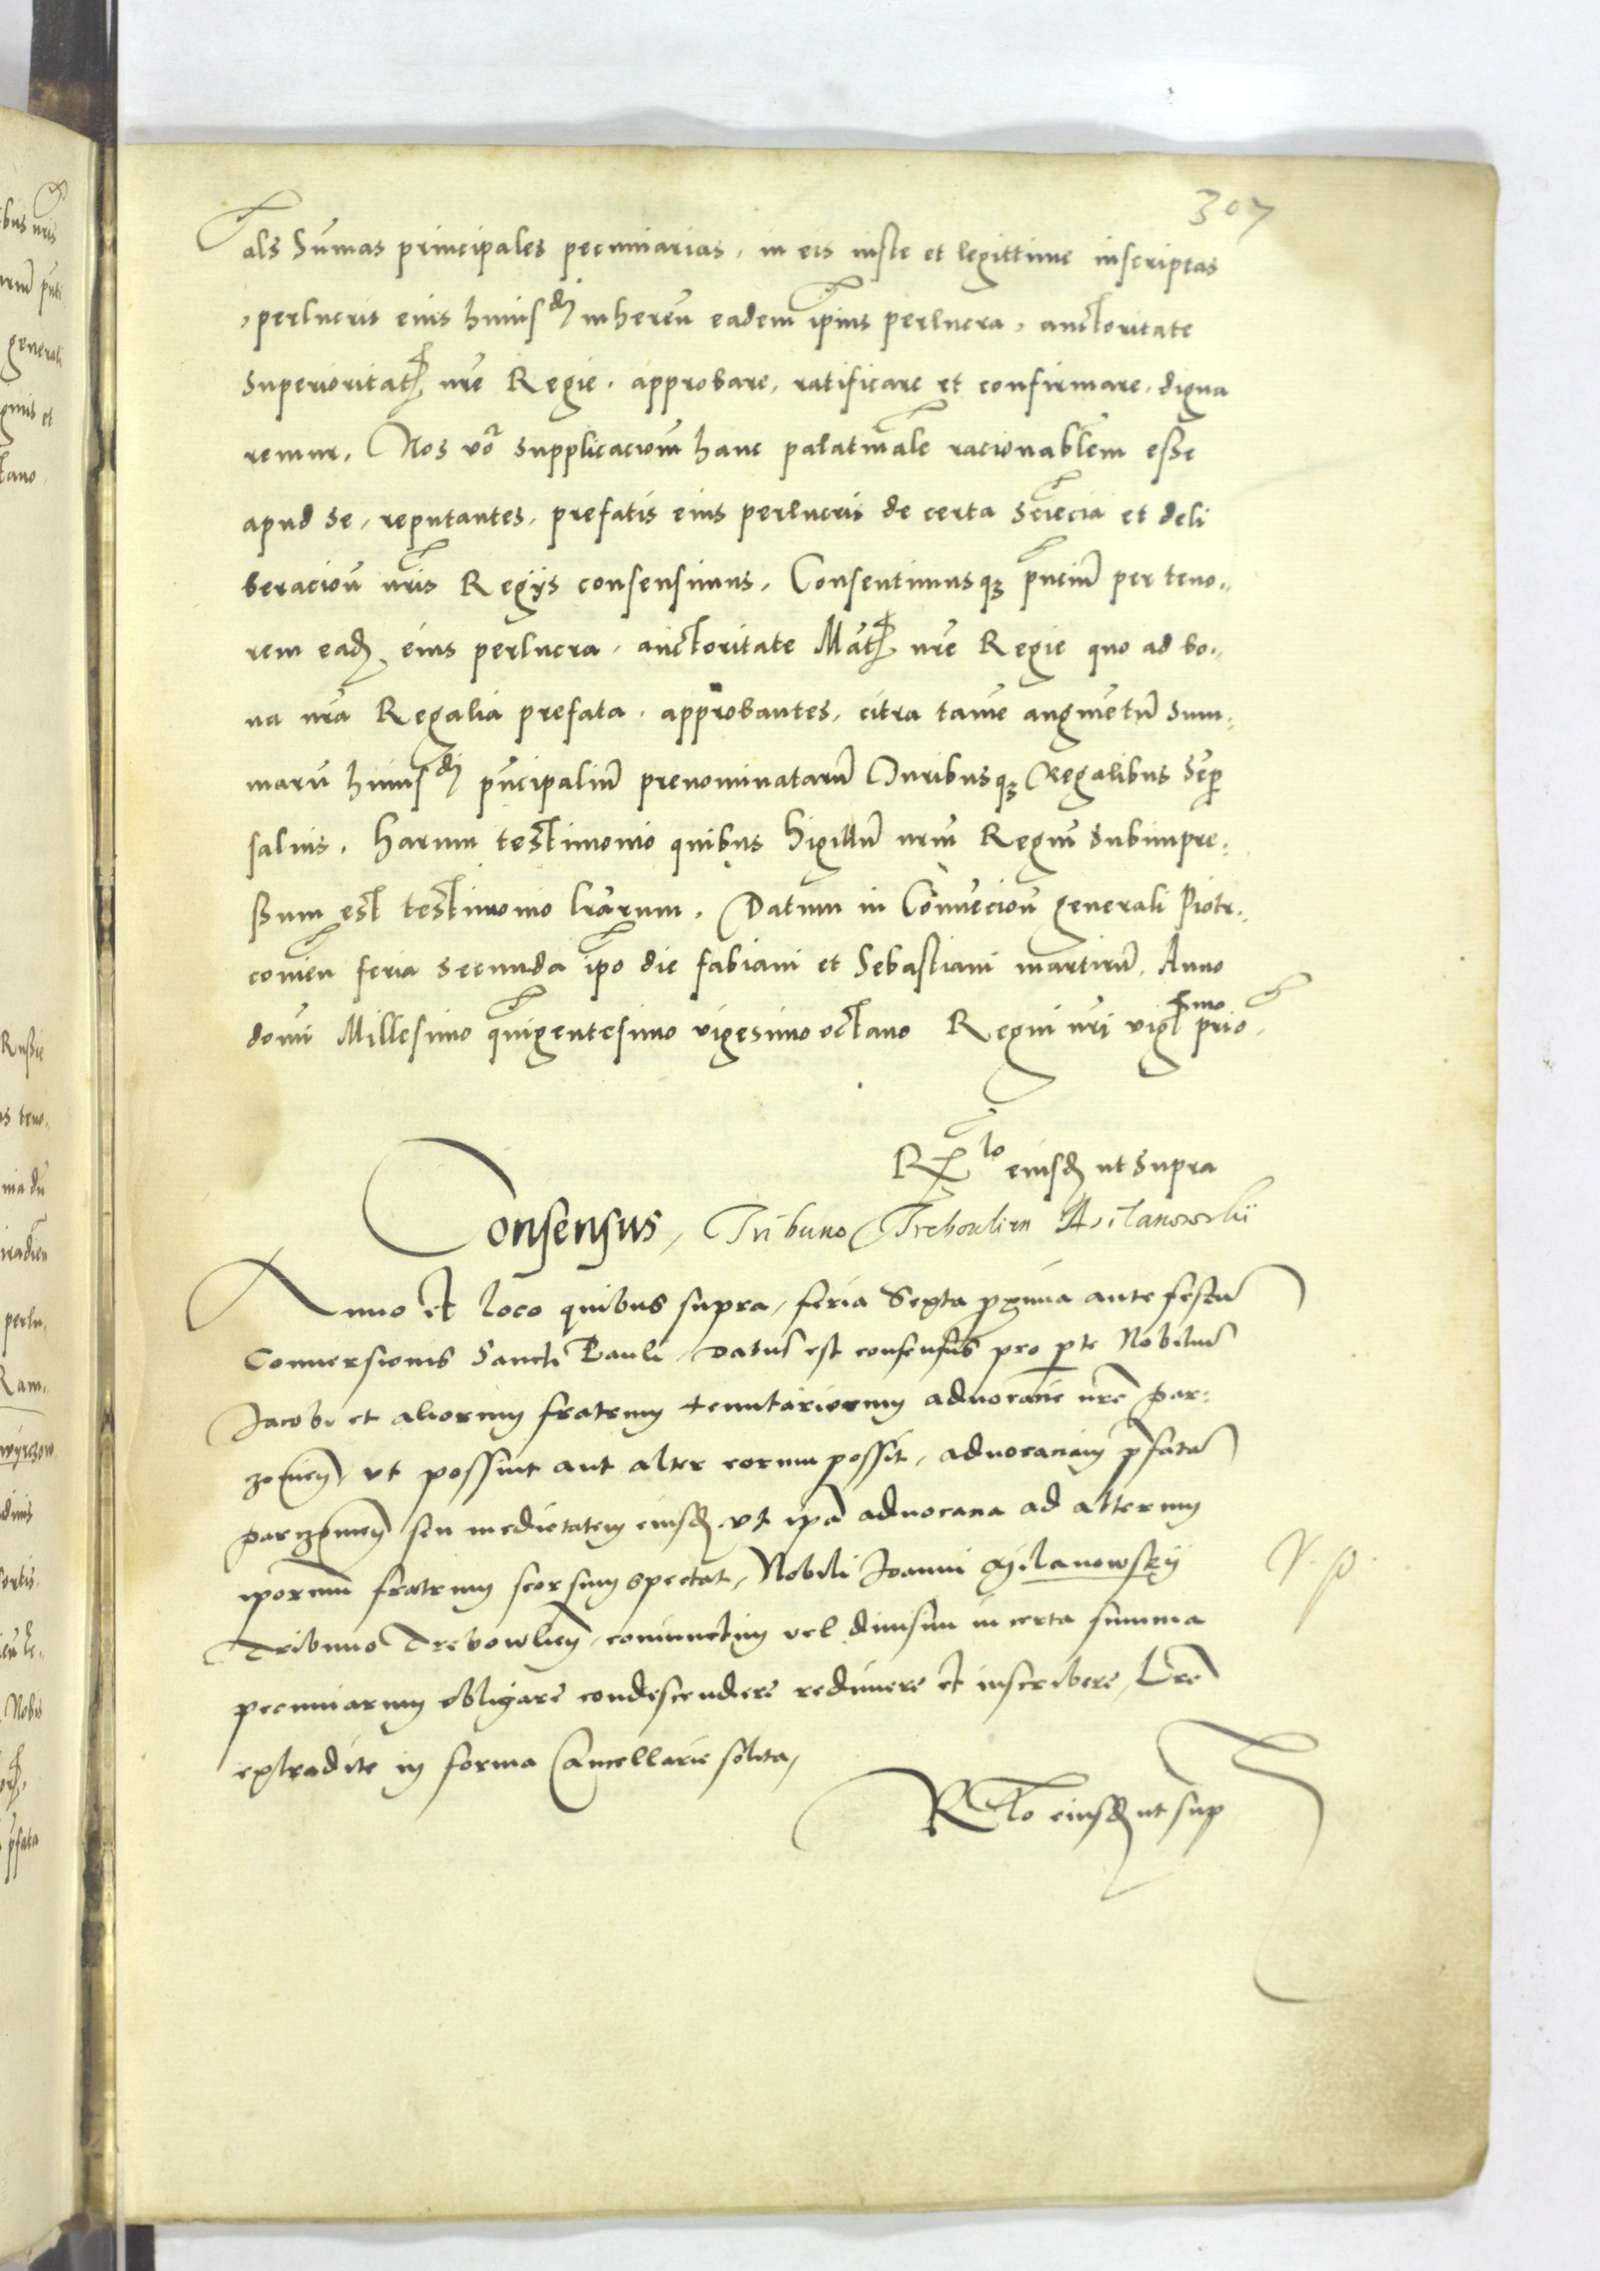 307
als Sumas principales pecuniarias, in eis iuste et legittime inscriptas
, perlucris eius huiusdi inhereñ eadem ipius perlucra, auctoritate
superioritatꝭ nre Regie, approbare, ratificare et confirmare, digna
remur, Nos v̄o supplicacioem hanc palatinalē racionablem esse
apud se, reputantes, prefatis eius perlucris de certa sciēcia et deli
beracioñ nris Regijs consensimus, Consentimusqꝫ pñcium per teno..
rem eadꝫ eius perlucra, auctoritate Mātꝭ nre Regie quo ad bo..
na nra Regalia prefata, approbantes, citra tamē augmētum sum.
marū huiusdi pñcipaliū prenominatarū Iuribusqꝫ Regalibus Semp
saluis, Harum testimonio quibus Sigillū nrm Regium subimpre.
ssum est testimonio lrarum, Datum in Conuēcioñ generali Piotr..
couien feria secunda ipo die fabiani et Sebastiani martirū, Anno
domi Millesimo quīgentesimo vigesimo octauo Regni nri viglmo prio
Rlo eiusdꝫ ut supra
Consensus, Tribuno Treboulien Milanowskii
Anno et loco quibus supra, feria Sexta proxima ante festū
Conuersionis Sancti Pauli, Datus est consensus pro pte Nobiliū
Jacobi et aliorum fratrum tenutariorum aduocatie nrē par:
zouien, vt possint aut alter eorum possit, aduocaciam pfatā
parczouien seu medietatem eiusdꝫ vt ipa aduocatia ad alterum
iporum fratrum seorsum spectat, Nobili Joanni Milanowskij
Tribuno Trebowlien, coniunctim vel diuisim in certa summa
pecuniarum obligare condescendere redimere et inscribere, Lrē
extradite in forma Cancellarie solita,
Rlo eiusdꝫ ut sup